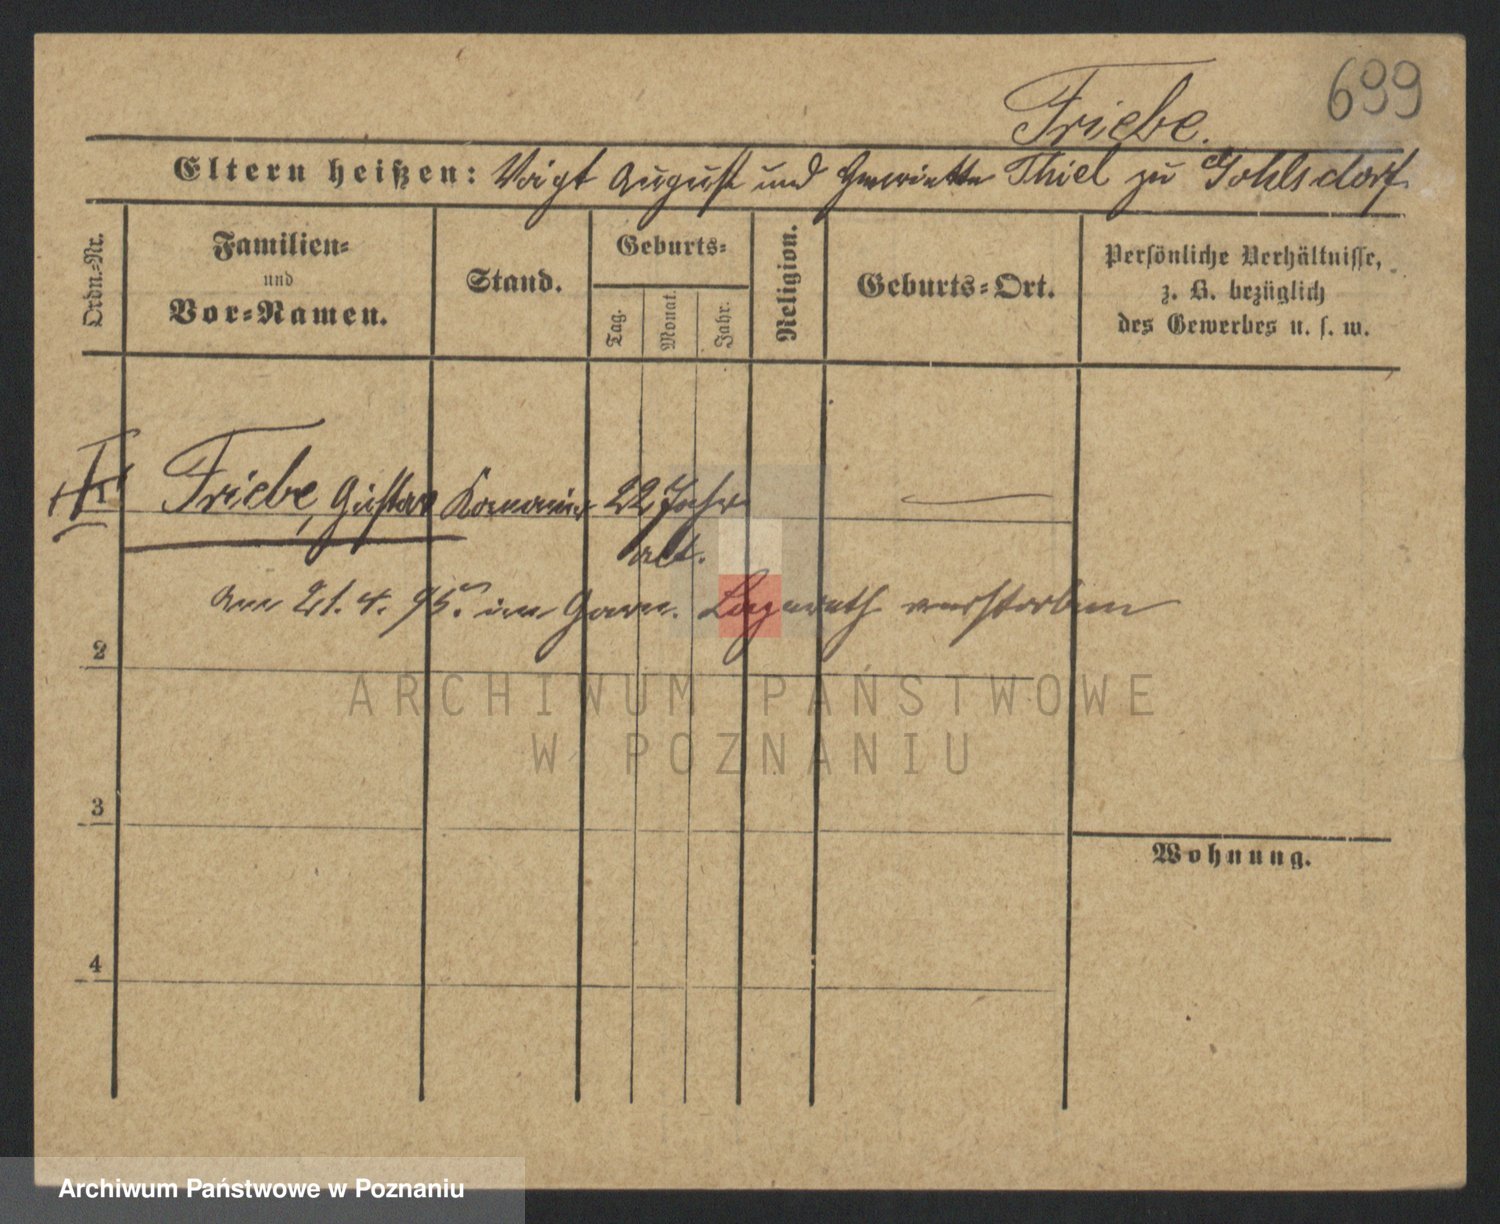 699
Friebe.
Eltern heißen: Voigt August und Henriette Thiel zu Gohlsdorf
Ordn.-Nr.
Familien-
und
Vor-Namen.
Stand.
Geburts-
Tag.
Monat.
Jahr.
Religion.
Geburts-Ort.
Persönliche Verhältnisse,
z. B. bezüglich
des Gewerbes u. s. w.
Friebe, Gustav Kanonier 22 Jahr
alt.
am 21. 4. 95. im Garn. Lazareth verstorben
2
ARCHIWUM PAŃSTWOWE
W POZNANIU
3
Wohnung.
4
Archiwum Państwowe w Poznaniu